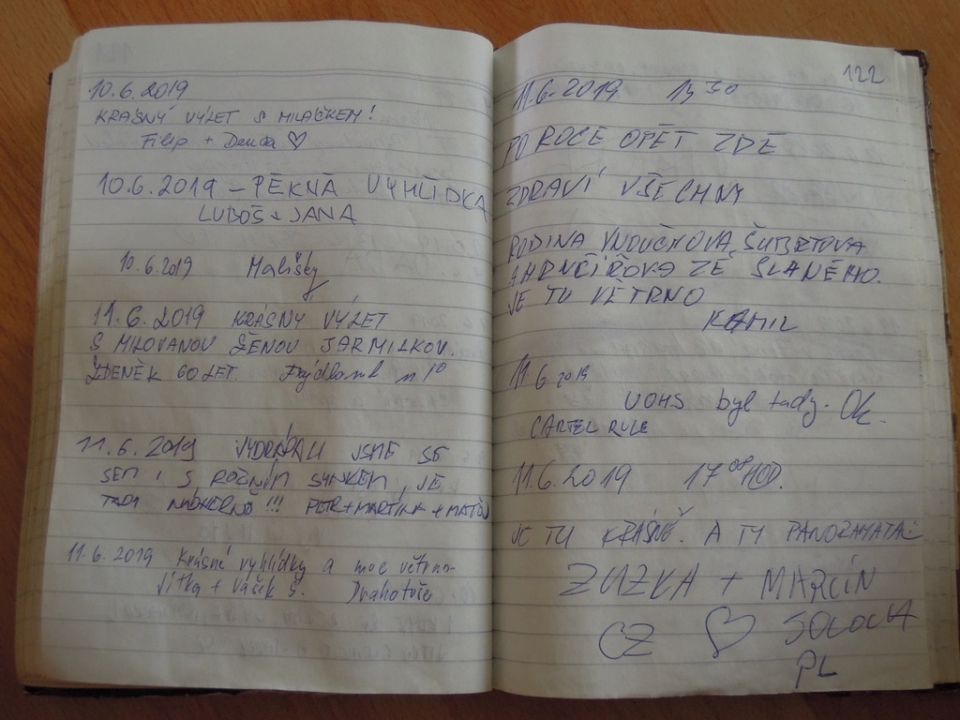 10.6.2019
KRÁSNÝ VÝLET S MILÁČKEM!
Filip + Denča ♡
10.6.2019 - PĚKNÁ VYHLÍDKA
LUBOŠ + JANA
10.6.2019 Mališky
11.6.2019 KRÁSNÝ VÝLET
S MILOVANOU ŽENOU JARMILKOU.
ZDENĚK 60 LET. Frýdlant n/O
11.6.2019 VYDRÁPALI JSME SE
SEM I S ROČNÍM SYNKEM, JE
TADY NÁDHERNĚ!!! PETR+MARTINA+MATĚJ
11.6.2019 Krásné vyhlídky a moc větrno
Jitka + Vašek S. Drahotuše
122
11.6.2019 13 30
PO ROCE OPĚT ZDE
ZDRAVÍ VŠECHNY
RODINA VNOUČKOVA, ŠUBRTOVA
A HRNČÍŘOVA ZE SLANÉHO.
JE TU VĚTRNO
KAMIL
11.6.2019
UOHS byl tady. Ok.
CARTEL RULE
11.6.2019 17 00 HOD.
JE TU KRÁSNĚ. A TY PANORAMATA.
ZUZKA + MARCIN
CZ ♡ SOCOCHA
PL